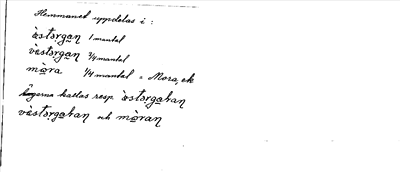 Hemmanet uppdelas i :
ò̀stərgạn 1 mantal
vèstərgạn 3/4 mantal
mòra 1/4 mantal = Mora, ek
ägorna kallas resp. òstərgatan
vèstərgatan och mòran